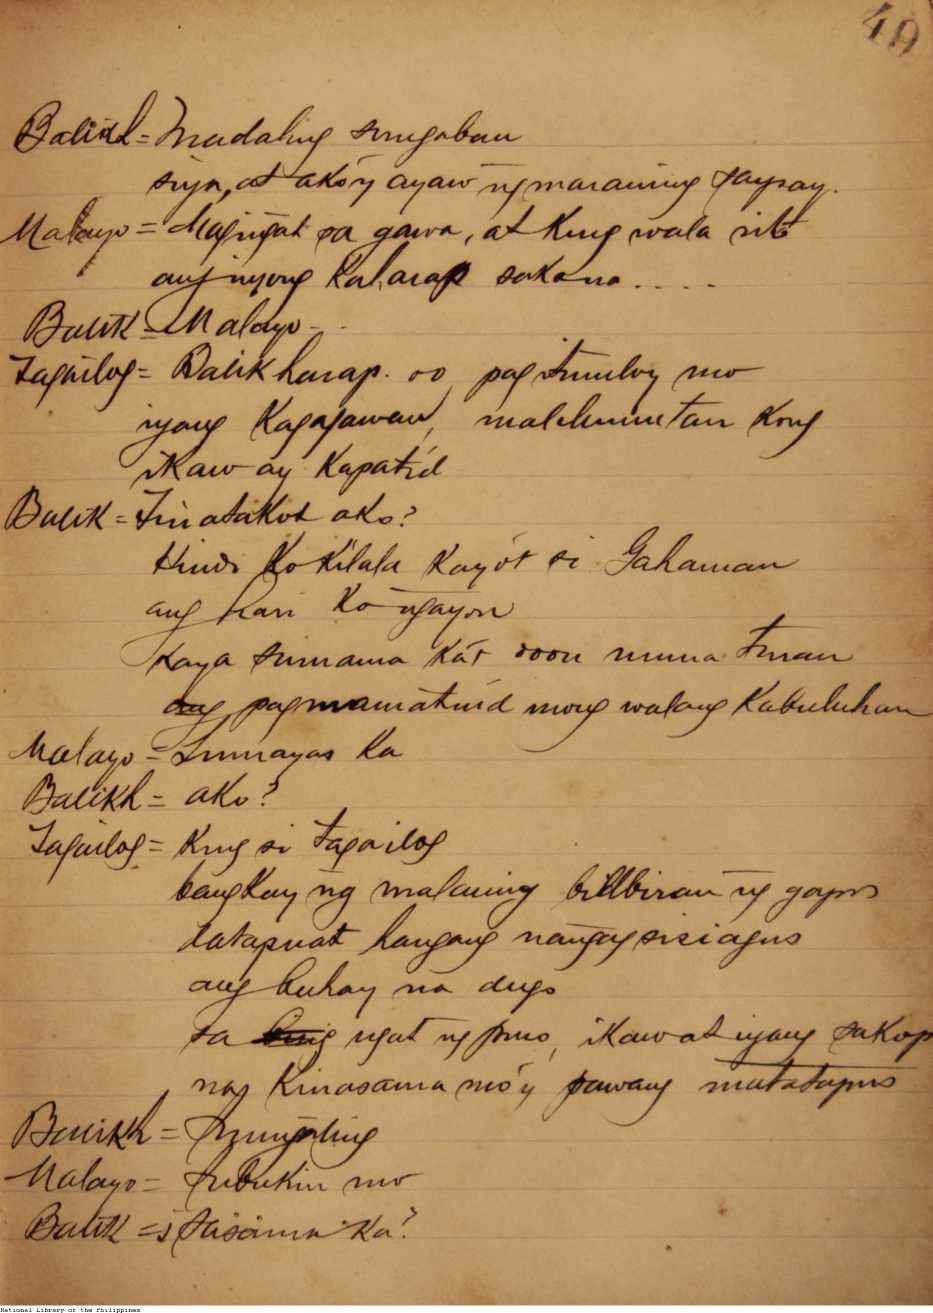 49
Balikh = Madaling sungaban
siya, at ako'y ayaw ng maraming saysay.
Malayo = Magingat sa gawa, at kung wala rito
ang inyong kaharap sakana.....
Balik = Malayo - . .
Tagailog = Balikharap. oo, pag itinuloy mo
iyang kagagawan, malilimutan kong
ikaw ay kapatid
Balik = Tinatakot ako?
Hindi ko kilala kayo't si Gahaman
ang hari ko ngayon
kaya sumama ka't doon muna turan
ang pagmamatuid mong walang kabuluhan
Malayo = Lumayas ka
Balikh = ako?
Tagailog = kung si tagailog
bangkay ng malaning bilibiran ng gapos
datapuat hangang nangagsisiagus
ang buhay na dugo
sa ugat ng puso, ikaw at iyang sakop
nag kinasama mo'y pawang matatapus
Balikh = Sinungaling
Malayo = Subukin mo
Balik = ¿ Sasama ka?
National Library of the Philippines